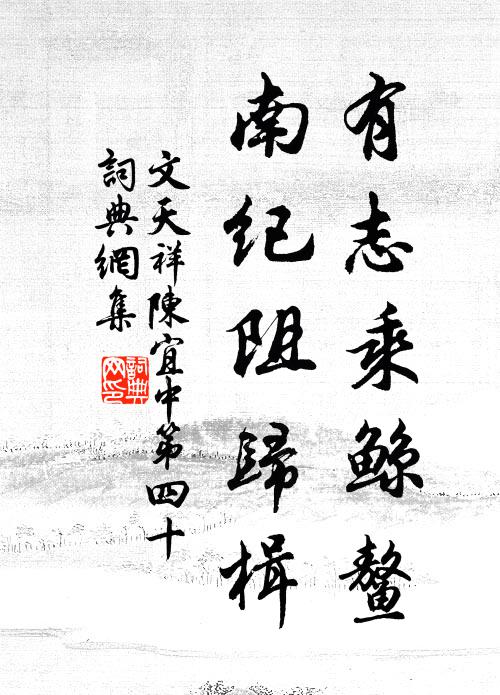 有志乘鲸鳌
南纪阻歸楫
文天祥陳宜中第四十
詞典網集
詞典網印